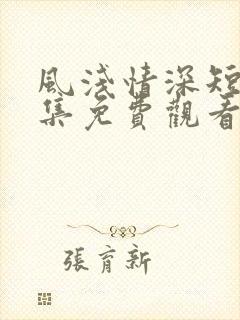 風淺情深短
集免費觀看
張育新